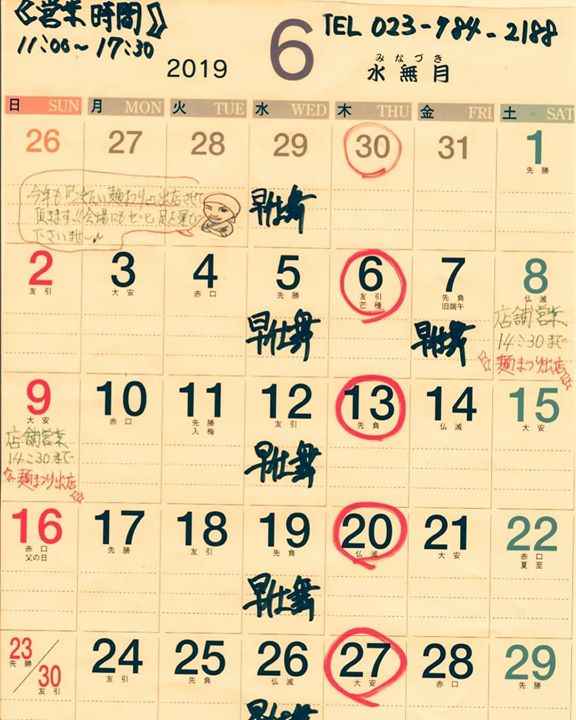 《営業時間》
11:00〜17:30
TEL 023-984-2188
2019
6
みなづき
水無月
日 SUN 月 MON 火 TUE 水 WED 木 THU 金 FRI 土 SAT
26 27 28 29 30 31 1
先勝
今年も
麺まつり
出店させて
頂きます!!会場にもぜひ足を運び
下さいませ〜
早仕舞
2 3 4 5 6 7 8
友引 大安 赤口 先勝 友引 先負 仏滅
芒種 旧端午
早仕舞 早仕舞
店舗営業
14:30まで
麺まつり出店
9 10 11 12 13 14 15
大安 赤口 先勝 友引 先負 仏滅 大安
入梅
店舗営業
14:30まで
麺まつり出店
早仕舞
16 17 18 19 20 21 22
赤口 先勝 友引 先負 仏滅 大安 赤口
父の日 夏至
早仕舞
23/30 24 25 26 27 28 29
先勝 友引 友引 先負 仏滅 大安 赤口 先勝